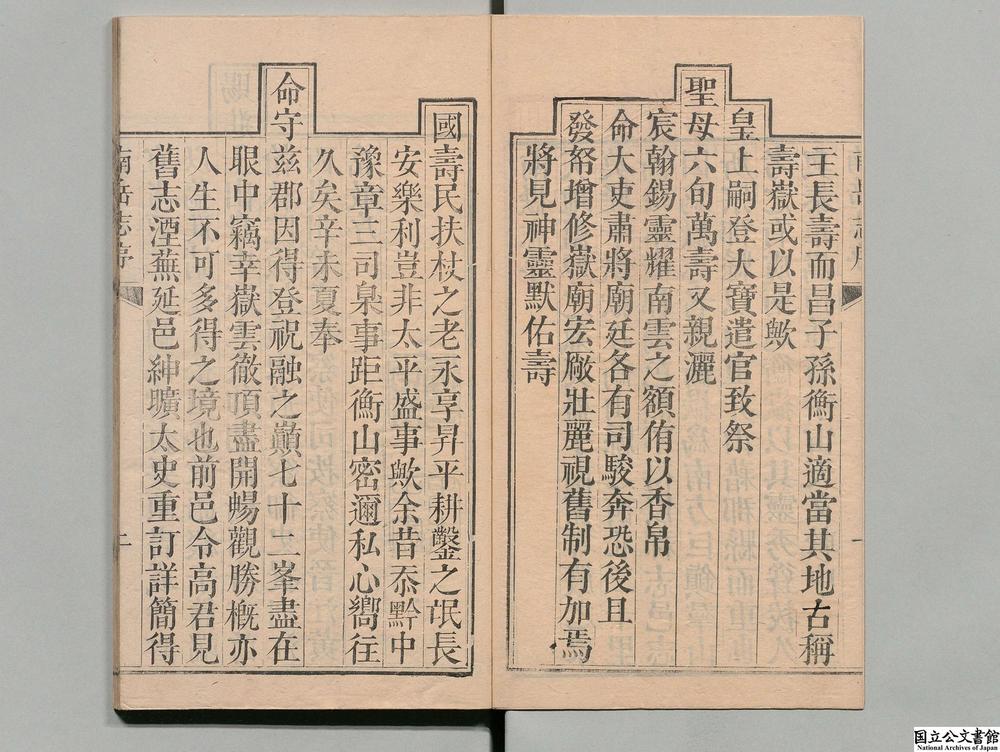 主長壽而昌子孫衡山適當其地古稱
壽嶽或以是歟
皇上嗣登大寶遣官致祭
聖母六旬萬壽又親灑
宸翰錫靈耀南雲之額侑以香帛
命大吏肅將廟廷各有司駿奔恐後且
發帑增修嶽廟宏厰壯麗視舊制有加焉
將見神靈默佑壽
國壽民扶杖之老永享昇平耕鑿之氓長
安樂利豈非太平盛事歟余昔忝黔中
豫章三司臬事距衡山密邇私心嚮往
久矣辛未夏奉
命守兹郡因得登祝融之巔七十二峯盡在
眼中竊幸嶽雲徹頂盡開暢觀勝槪亦
人生不可多得之境也前邑令高君見
舊志湮蕪延邑紳曠太史重訂詳簡得
南岳志序
二
国立公文書館
National Archives of Japan